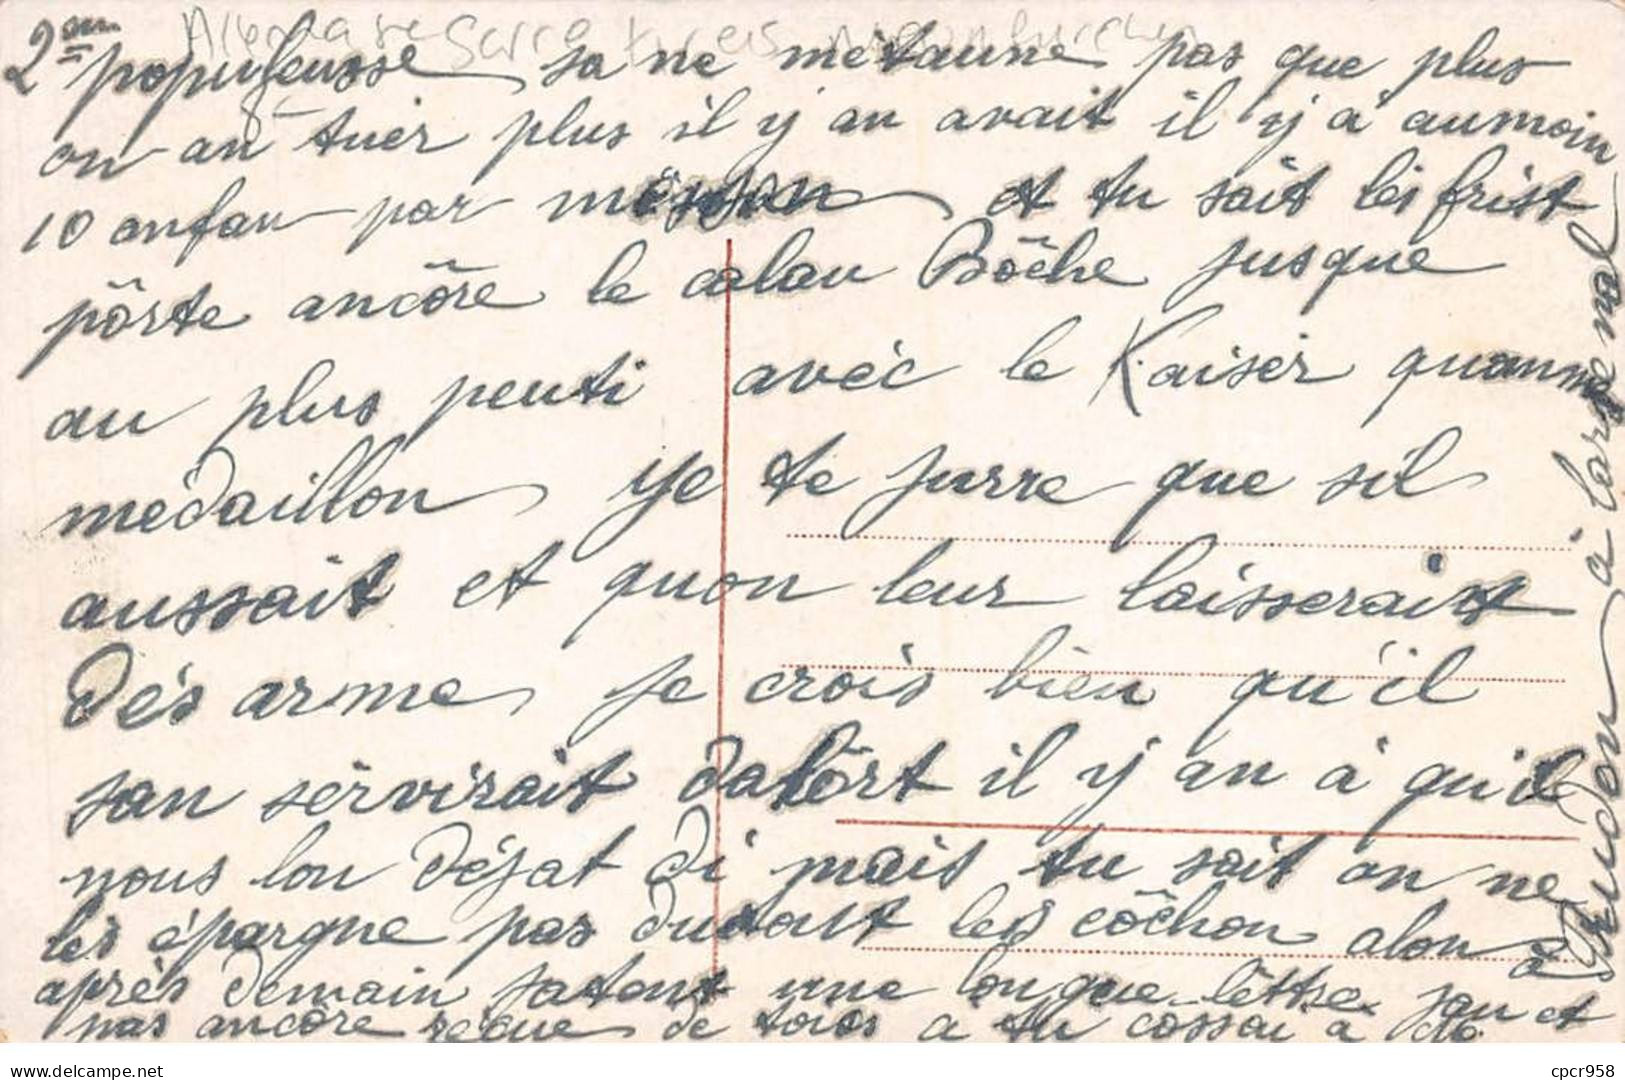 2em populeusse sa ne métaune pas que plus
on an tuer plus il y an avait il y à aumoin
10 anfan par maison et tu sait les frist
pôrte ancôre le calau Bôche jusque
au plus peuti avéc le Kaiser quanme
medaillon ye te jurre que sil
aussait et quon leur laisserait
dés arme je crois bien qu'il
san sèrvirait dabôrt il y an à qu'il
nous lon déjat di mais tu sait on ne
les épargne pas dutout les côchon alon à
après demain jatent une longue lêttre jan et
pas ancôre reçue de toi
à larsenal
cpcr958